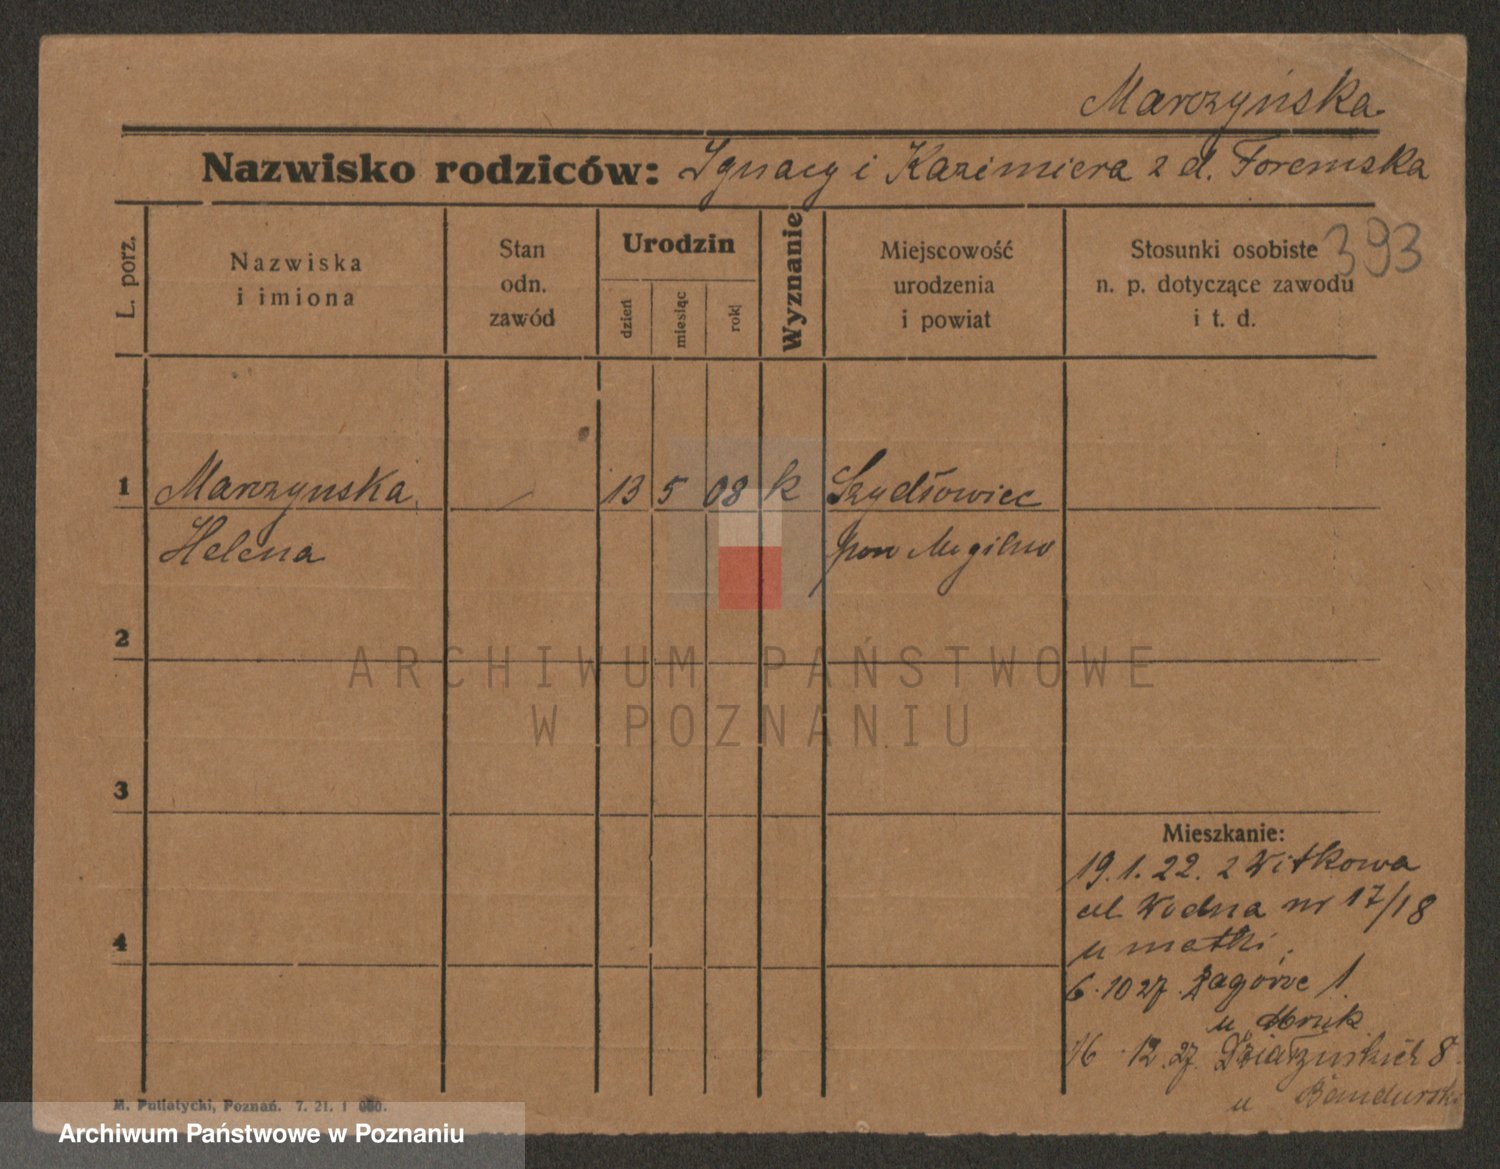 Marczyńska
Nazwisko rodziców: Ignacy i Kazimiera z d. Foremska
393
L. porz.
Nazwiska
i imiona
Stan
odn.
zawód
Urodzin
dzień
miesiąc
rok
Wyznanie
Miejscowość
urodzenia
i powiat
Stosunki osobiste
n. p. dotyczące zawodu
i t. d.
1 Marczynska 13 5 08 k Szydłowiec
Helena pow Mogilno
2
ARCHIWUM PAŃSTWOWE
W POZNANIU
3
Mieszkanie:
19.1.22. z Witkowa
ul. Wodna nr 17/18
u matki.
4
6.10 27. Zagórze 1.
u Mruk
16.12.27. Działyńskich 8.
u Bandursk
M. Putiatycki, Poznań. 7. 21. 1
Archiwum Państwowe w Poznaniu